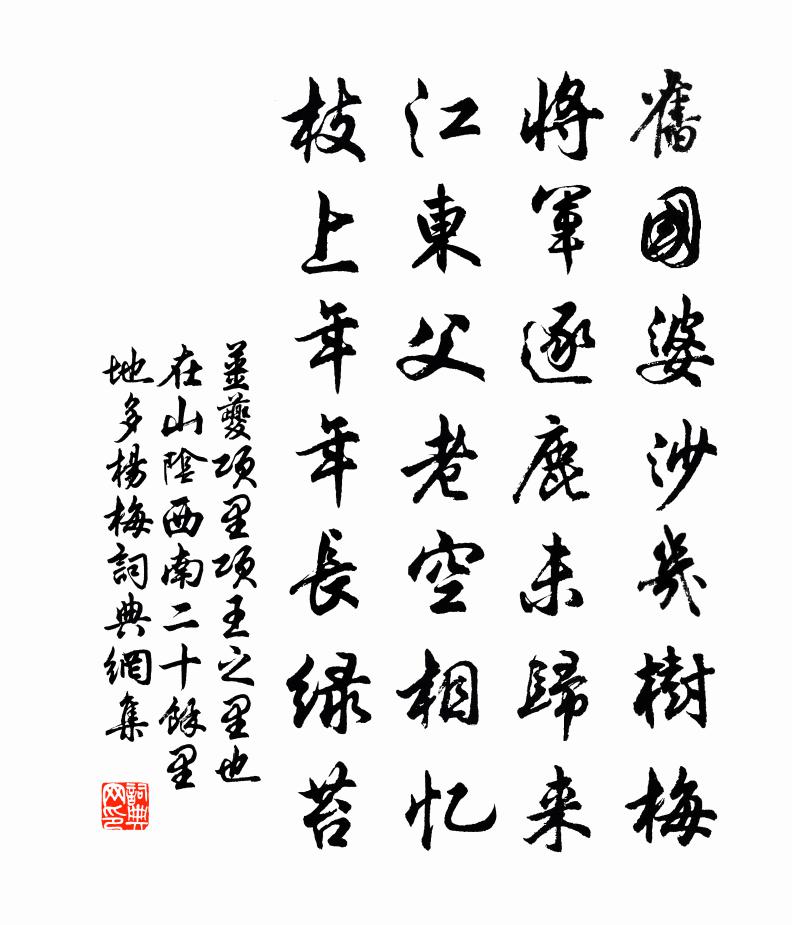 舊國婆娑幾樹梅
將軍逐鹿未歸来
江東父老空相忆
枝上年年長绿苔
姜夔項里項王之里也
在山陰西南二十餘里
地多楊梅詞典網集
詞典
网印